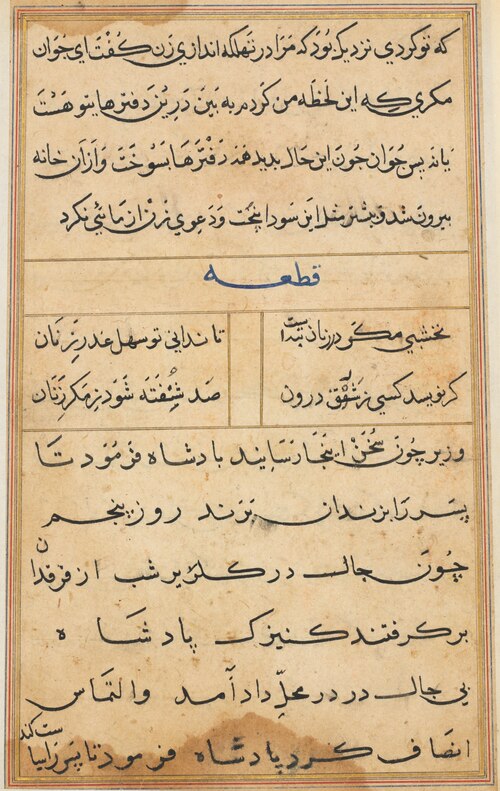 که تو کردی نزدیک بود که مرا در تهلکه اندازی زن کفت ای جوان
مکری که این لحظه من کردم به بین درین دفترها بتو هست
یا نه پس جوان چون این حال بدید همه دفترها بسوخت و از آن خانه
بیرون شد و بیشتر مثل این سودا نپخت و دعوی زن از مائی نکرد
قطعه
نخشبی مکر در زنان تنداست
تا ندانی تو سهل غدر زنان
کر نویسد کسی ز شقش درون
صد شیفته شود ز مکر زنان
وزیر چون سخن اینجا رسانید بادشاه فرمود تا
پسر را بزندان برند روز پنجم
چون جال در کلزیر شب از فرقدان
بر کرفتند کنیزک پادشاه
بی جال در در محل داد آمد و التماس
انصاف کرد پادشاه فرمود تا پسر را بیاست کند